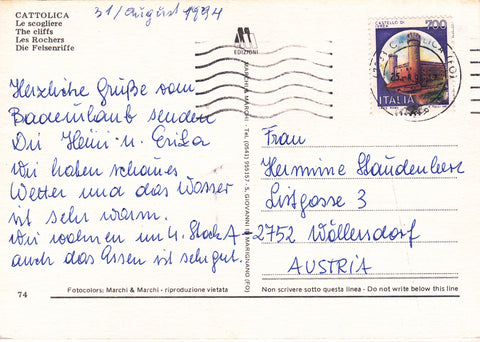 CATTOLICA
Le scogliere
The cliffs
Les Rochers
Die Felsenriffe
31/August 1994
EDIZIONI
CASTELLO DI
700
ITALIA
Herzliche Grüße vom
Badeurlaub senden
Dir Heini u. Erika
Wir haben schönes
Wetter und das Wasser
ist sehr warm.
Wir wohnen im 4. Stock
auch das Essen ist sehr gut.
MARCHI & MARCHI - Tel. (0541) 955157 - S. GIOVANNI IN MARIGNANO (FO)
Frau
Hermine
A-2752 Wöllersdorf
AUSTRIA
74
Fotocolors: Marchi & Marchi - riproduzione vietata
Non scrivere sotto questa linea - Do not write below this line